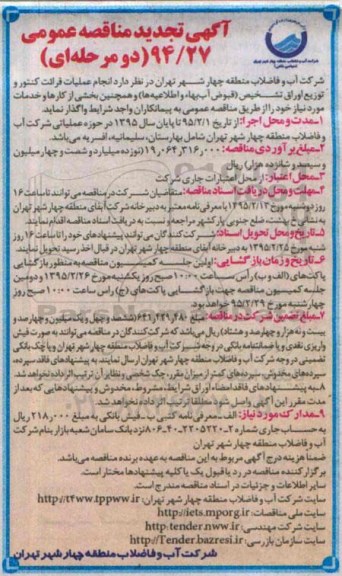 آگهی تجدید مناقصه عمومی
۹۴/۲۷ (دو مرحله‌ای)
شرکت آب و فاضلاب منطقه چهار شهر تهران
شرکت آب و فاضلاب منطقه چهار شهر تهران در نظر دارد انجام عملیات قرائت کنتور و
توزیع اوراق تشخیص (قبوض آب‌بهاء و اطلاعیه‌ها) و همچنین بخشی از کارها و خدمات
مورد نیاز خود را از طریق مناقصه عمومی به پیمانکاران واجد شرایط واگذار نماید.
۱ـ مدت و محل اجرا: از تاریخ ۹۵/۲/۱ تا پایان سال ۱۳۹۵ در حوزه عملیاتی شرکت آب
و فاضلاب منطقه چهار شهر تهران شامل بهارستان، سلیمانیه، افسریه می‌باشد.
۲ـ مبلغ برآوردی مناقصه: ۱۹,۰۶۴,۳۱۶,۰۰۰ (نوزده میلیارد و شصت و چهار میلیون
و سیصد و شانزده هزار) ریال
۳ـ محل اعتبار: از محل اعتبارات جاری شرکت
۴ـ مهلت و محل دریافت اسناد مناقصه: متقاضیان شرکت در مناقصه می توانند تا ساعت ۱۶
روز دوشنبه مورخ ۱۳۹۵/۲/۱۳ با معرفی نامه معتبر به دبیرخانه شرکت آبفای منطقه چهار شهر تهران
به نشانی پشت، ضلع جنوبی پارکشهر مراجعه و نسبت به دریافت اسناد مناقصه اقدام نمایند.
۵ـ تاریخ و محل تحویل اسناد: شرکت کنندگان می توانند پیشنهادهای خود را تا ساعت ۱۶ روز
شنبه مورخ ۱۳۹۵/۲/۲۵ به دبیرخانه آبفای منطقه چهار شهر تهران در قبال اخذ رسید تحویل نمایند.
۶ـ تاریخ و زمان بازگشایی: اولین جلسه کمیسیون مناقصه به منظور بازگشایی
پاکت‌های (الف و ب) رأس ساعت ۱۰:۰۰ صبح روز یکشنبه مورخ ۱۳۹۵/۲/۲۶ و دومین
جلسه کمیسیون مناقصه جهت بازگشایی پاکت‌های (ج) راس ساعت ۱۰:۰۰ صبح روز
چهارشنبه مورخ ۹۵/۲/۲۹ خواهد بود.
۷ـ مبلغ تضمین شرکت در مناقصه: ۶۴۱,۴۲۹,۴۸۰ (ششصد و چهل و یک میلیون و چهارصد و
بیست و نه هزار و چهارصد و هشتاد) ریال می‌باشد که شرکت کنندگان در مناقصه می‌توانند به صورت فیش
واریزی نقدی و یا ضمانتنامه بانکی در وجه شرکت آب و فاضلاب منطقه چهار شهر تهران و یا چک بانکی
تضمینی در وجه شرکت آب و فاضلاب منطقه چهار شهر تهران ارسال نمایند. به پیشنهادهای فاقد سپرده،
سپرده‌های مخدوش، سپرده‌های کمتر از میزان مقرر، چک شخصی و نظایر آن ترتیب اثر داده نخواهد شد.
۸ـ به پیشنهادهای فاقد امضاء اوراق شرایط، مشروط، مخدوش و پیشنهادهایی که بعد از
مدت مقرر این آگهی واصل شود مطلقا ترتیب اثر داده نخواهد شد.
۹ـ مدارک مورد نیاز: الف ـ معرفی نامه کتبی ب ـ فیش بانکی به مبلغ ۲۱۸,۰۰۰ ریال
به حساب جاری شماره نزد بانک سامان شعبه بازار بنام شرکت
آب و فاضلاب منطقه چهار شهر تهران
ضمنا هزینه درج آگهی مربوط به این مناقصه به عهده برنده مناقصه می‌باشد.
برگزار کننده مناقصه در رد یا قبول یک یا کلیه پیشنهادها مختار است.
سایر اطلاعات و جزئیات در اسناد مناقصه مندرج است.
سایت شرکت آب و فاضلاب منطقه چهار شهر تهران: http://t4ww.tppww.ir
سایت ملی مناقصات: http://iets.mporg.ir
سایت شرکت مهندسی: http:tender.nww.ir
سایت سازمان بازرسی: http://Tender.bazresi.ir
شرکت آب و فاضلاب منطقه چهار شهر تهران